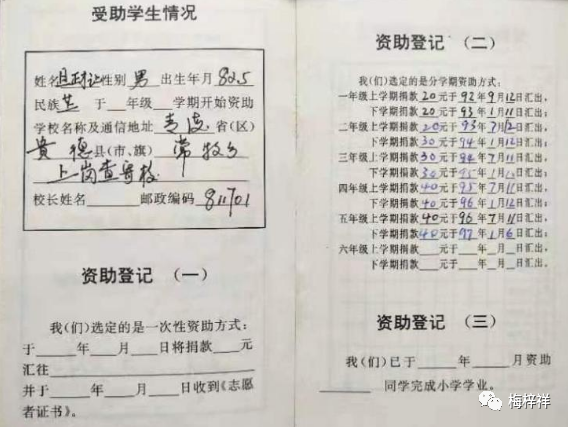 受助学生情况
姓名 性别 男 出生年月 82.5
民族 于 年级 学期开始资助
学校名称及通信地址 青海 省(区)
贵德 县(市、旗) 常牧乡
上岗查寄校
校长姓名 邮政编码 811701
资助登记 (一)
我(们)选定的是一次性资助方式:
于 年 月 日将捐款 元
汇往
并于 年 月 日收到《志愿
者证书》。
资助登记 (二)
我(们)选定的是分学期资助方式:
一年级上学期捐款 20 元于 92 年 9 月 12 日汇出,
下学期捐款 20 元于 93 年 1 月 11 日汇出。
二年级上学期捐款 20 元于 93 年 7 月 12 日汇出,
下学期捐款 30 元于 94 年 1 月 12 日汇出。
三年级上学期捐款 30 元于 94 年 7 月 11 日汇出,
下学期捐款 30 元于 95 年 1 月 日汇出。
四年级上学期捐款 40 元于 95 年 7 月 11 日汇出,
下学期捐款 40 元于 96 年 1 月 12 日汇出。
五年级上学期捐款 40 元于 96 年 7 月 11 日汇出,
下学期捐款 40 元于 97 年 1 月 6 日汇出。
六年级上学期捐款 元于 年 月 日汇出,
下学期捐款 元于 年 月 日汇出。
资助登记 (三)
我(们)已于 年 月资助
同学完成小学学业。
梅梓祥